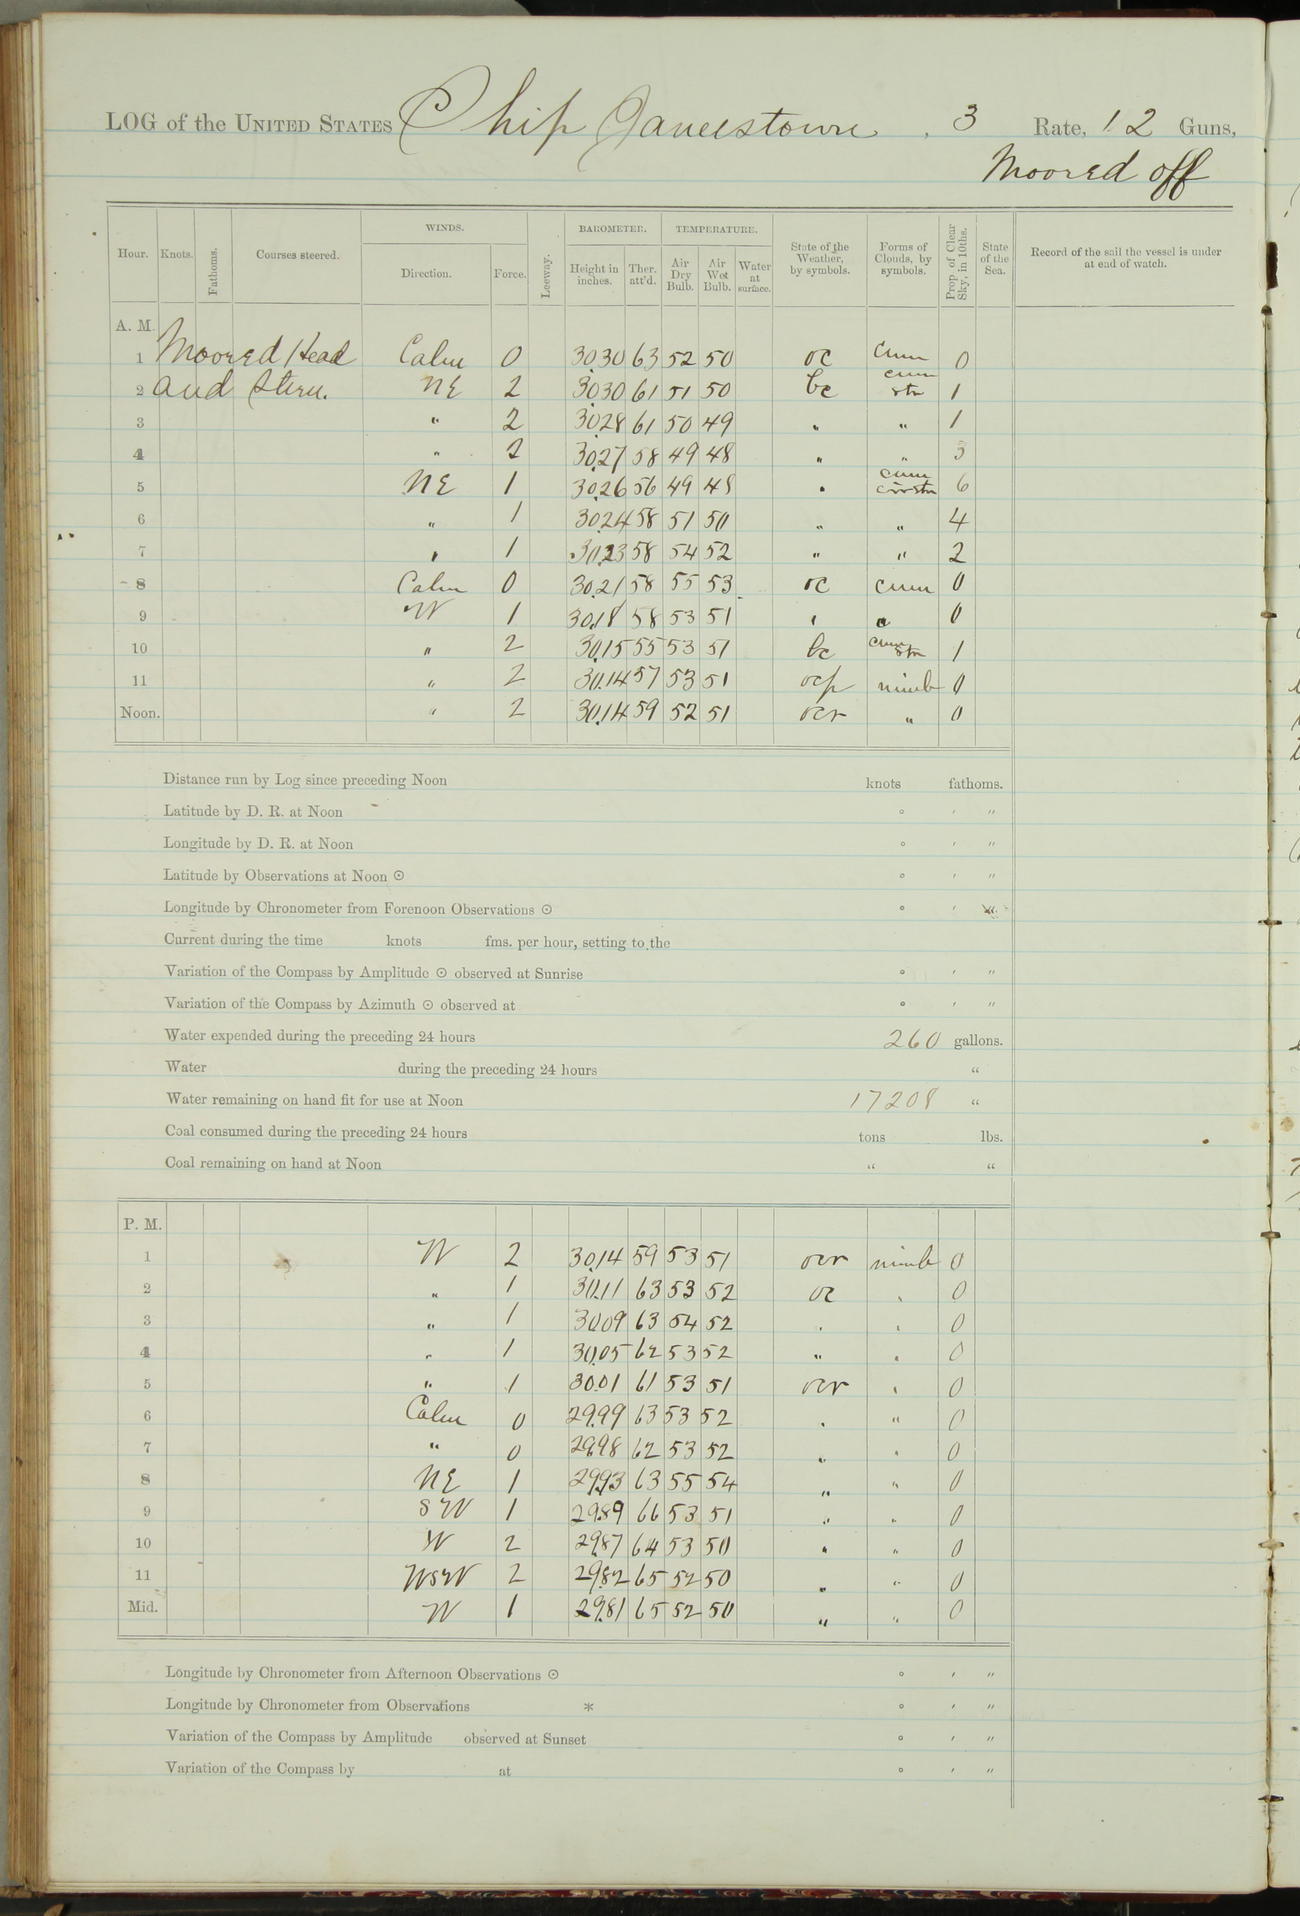 LOG of the UNITED STATES Ship Jamestown, 3 Rate, 12 Guns,
Moored off
Hour. Knots. Fathoms. Courses steered. WINDS. Direction. Force. Leeway. BAROMETER. Height in inches. Ther. att'd. TEMPERATURE. Air Dry Bulb. Air Wet Bulb. Water at surface. State of the Weather, by symbols. Forms of Clouds, by symbols. Prop. of Clear Sky, in 10ths. State of the Sea. Record of the sail the vessel is under at end of watch.
A. M.
1 Moored Head Calm 0 30.30 63 52 50 oc cum 0
2 and Stern. NE 2 30.30 61 51 50 bc cum str 1
3 " 2 30.28 61 50 49 " " 1
4 " 2 30.27 58 49 48 " " 3
5 NE 1 30.26 56 49 48 " cum cir str 6
6 " 1 30.24 58 51 50 " " 4
7 " 1 30.23 58 54 52 " " 2
8 Calm 0 30.21 58 55 53 oc cum 0
9 W 1 30.18 58 53 51 " " 0
10 " 2 30.15 55 53 51 bc cum str 1
11 " 2 30.14 57 53 51 ocp nimb 0
Noon. " 2 30.14 59 52 51 ocr " 0
Distance run by Log since preceding Noon knots fathoms.
Latitude by D. R. at Noon ° ′ ″
Longitude by D. R. at Noon ° ′ ″
Latitude by Observations at Noon ☉ ° ′ ″
Longitude by Chronometer from Forenoon Observations ☉ ° ′ ″
Current during the time knots fms. per hour, setting to the
Variation of the Compass by Amplitude ☉ observed at Sunrise ° ′ ″
Variation of the Compass by Azimuth ☉ observed at ° ′ ″
Water expended during the preceding 24 hours 260 gallons.
Water during the preceding 24 hours "
Water remaining on hand fit for use at Noon 17208 "
Coal consumed during the preceding 24 hours tons lbs.
Coal remaining on hand at Noon " "
P. M.
1 W 2 30.14 59 53 51 ocr nimb 0
2 " 1 30.11 63 53 52 oc " 0
3 " 1 30.09 63 54 52 " " 0
4 " 1 30.05 62 53 52 " " 0
5 " 1 30.01 61 53 51 ocr " 0
6 Calm 0 29.99 63 53 52 " " 0
7 " 0 29.98 62 53 52 " " 0
8 NE 1 29.93 63 55 54 " " 0
9 SW 1 29.89 66 53 51 " " 0
10 W 2 29.87 64 53 50 " " 0
11 WSW 2 29.82 65 52 50 " " 0
Mid. W 1 29.81 65 52 50 " " 0
Longitude by Chronometer from Afternoon Observations ☉ ° ′ ″
Longitude by Chronometer from Observations * ° ′ ″
Variation of the Compass by Amplitude observed at Sunset ° ′ ″
Variation of the Compass by at ° ′ ″